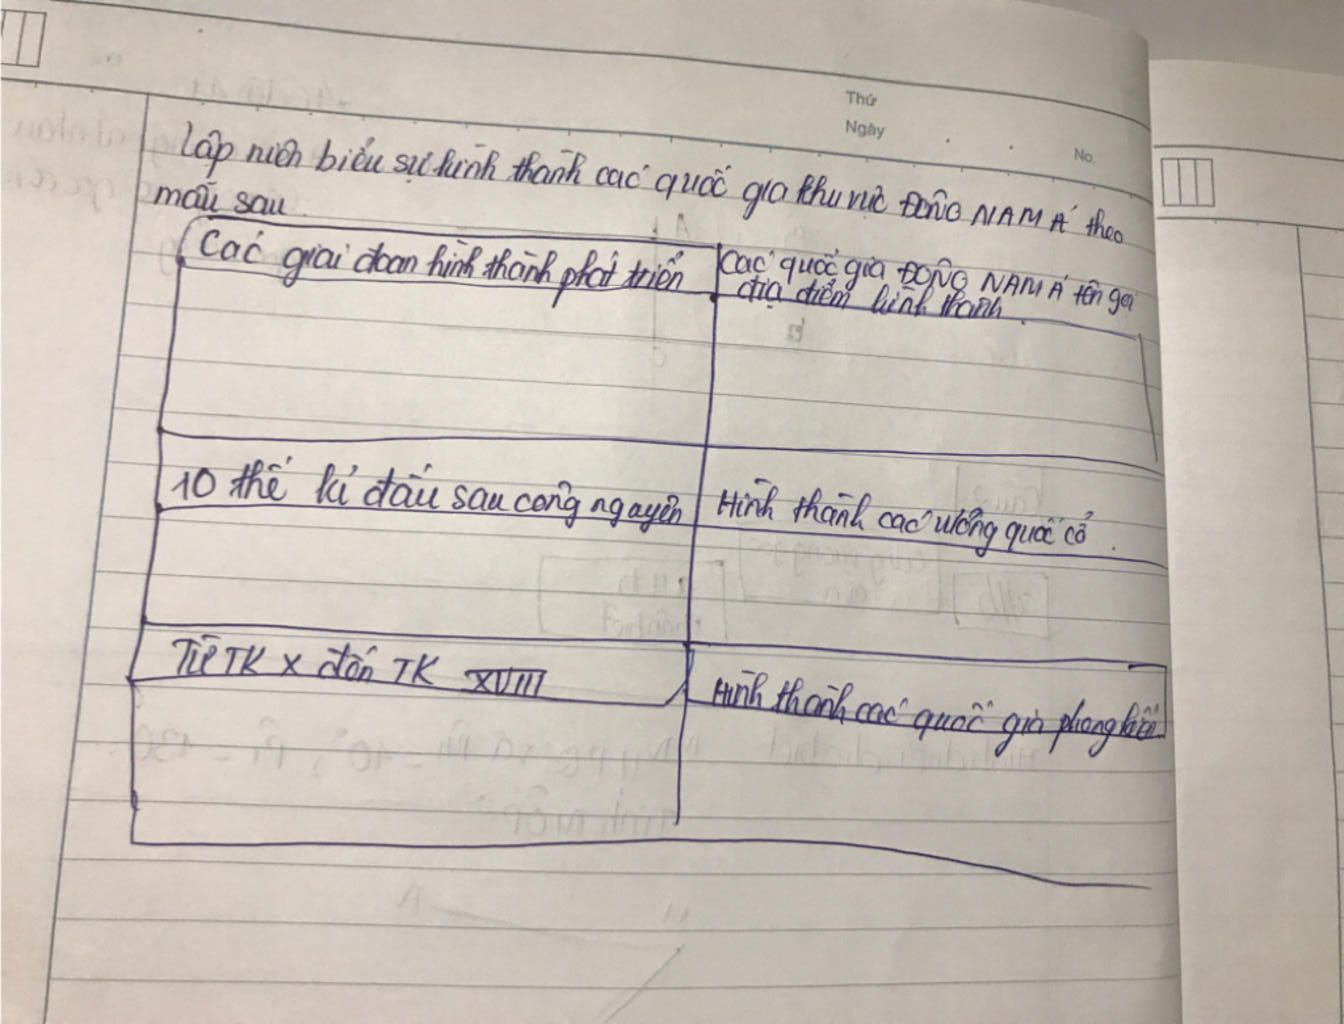 Thứ
Ngày
No.
Lập niên biểu sự hình thành các quốc gia khu vực ĐÔNG NAM Á theo
mẫu sau
Các giai đoạn hình thành phát triển
Các quốc gia ĐÔNG NAM Á tên gọi
địa điểm hình thành
10 thế kỉ đầu sau công nguyên
Hình thành các vương quốc cổ.
Từ TK X đến TK XVIII
Hình thành các quốc gia phong kiến